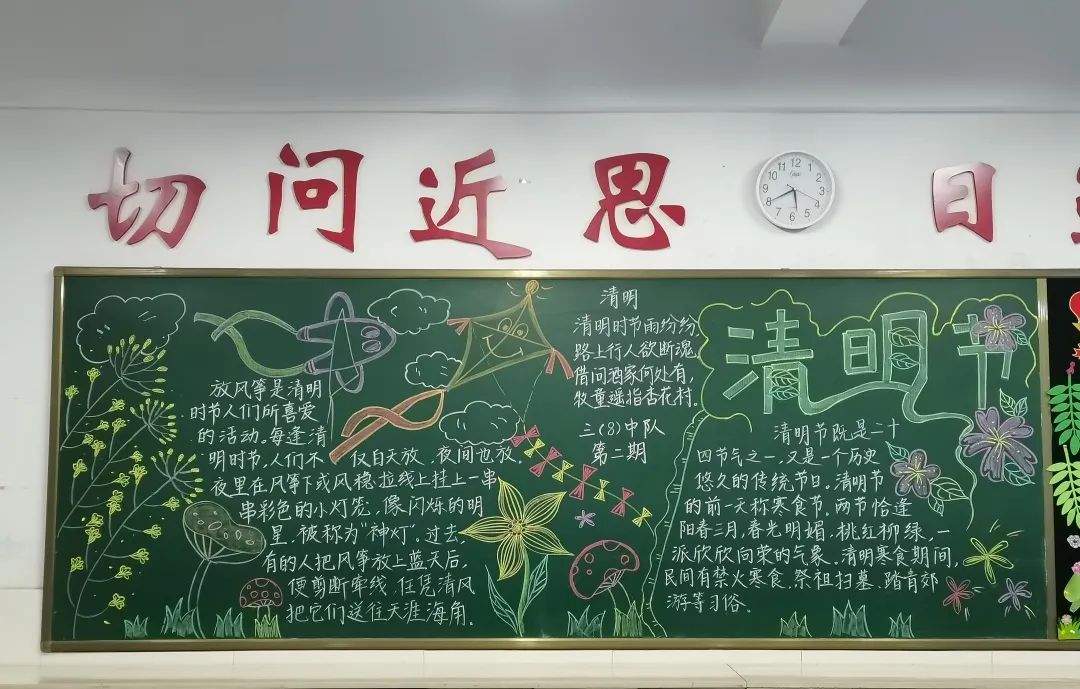 切问近思
日
12
1
2
3
4
5
6
7
8
9
10
11
放风筝是清明
时节人们所喜爱
的活动。每逢清
明时节,人们不仅白天放,夜间也放。
夜里在风筝下或风稳拉线上挂上一串
串彩色的小灯笼,像闪烁的明
星,被称为“神灯”。过去,
有的人把风筝放上蓝天后,
便剪断牵线,任凭清风
把它们送往天涯海角。
清明
清明时节雨纷纷,
路上行人欲断魂。
借问酒家何处有,
牧童遥指杏花村。
三(8)中队
第二期
清明节
清明节既是二十
四节气之一,又是一个历史
悠久的传统节日。清明节
的前一天称寒食节。两节恰逢
阳春三月,春光明媚,桃红柳绿,一
派欣欣向荣的气象。清明寒食期间,
民间有禁火寒食、祭祖扫墓、踏青郊
游等习俗。